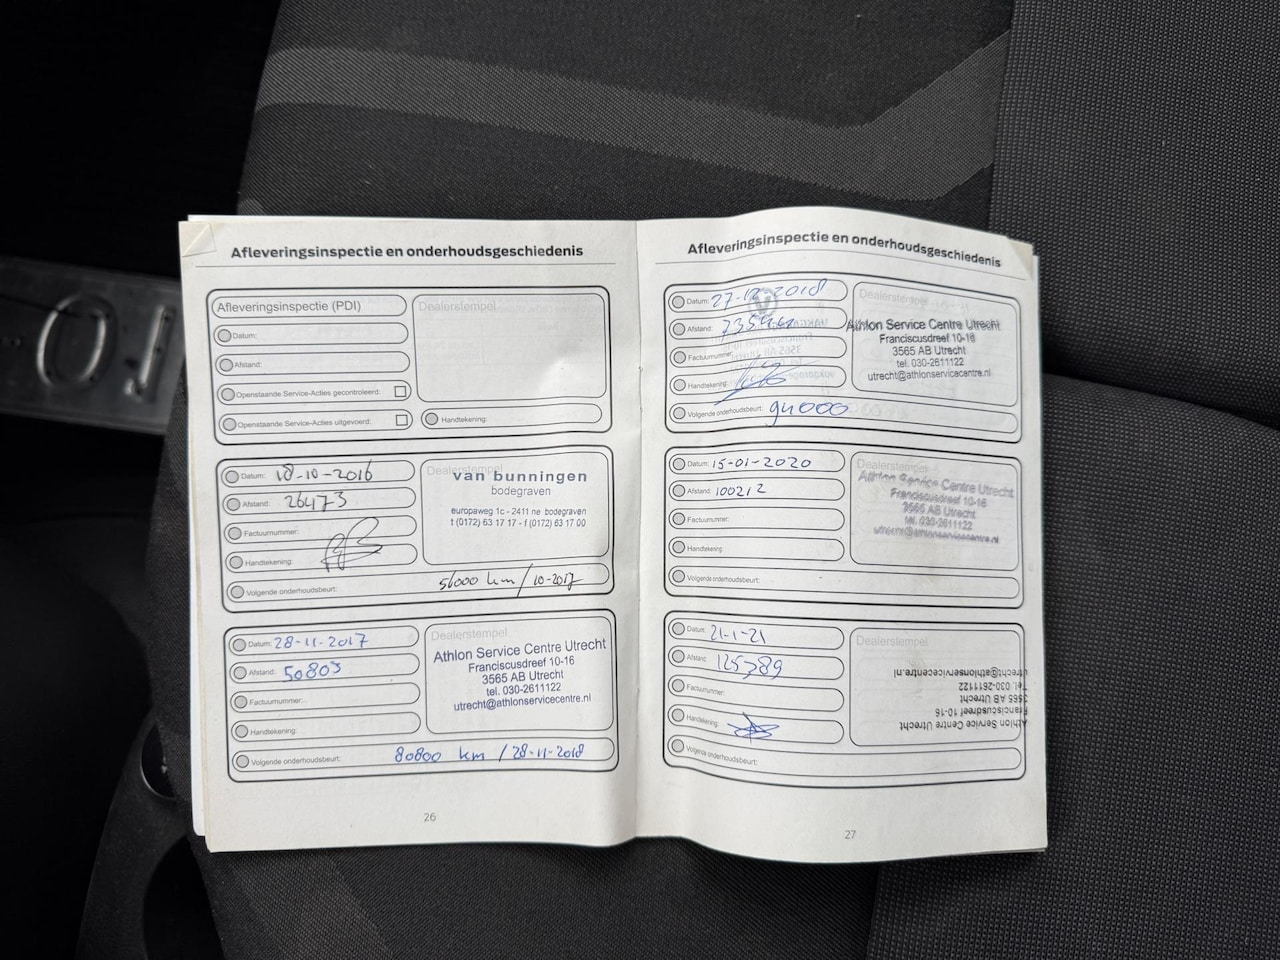 Afleveringsinspectie en onderhoudsgeschiedenis
Afleveringsinspectie (PDI)
Dealerstempel
Datum:
Afstand:
Openstaande Service-Acties gecontroleerd:
Openstaande Service-Acties uitgevoerd:
Handtekening:
Datum: 18-10-2016
Afstand: 26473
Factuurnummer:
Handtekening:
Volgende onderhoudsbeurt: 56000 km / 10-2017
Dealerstempel
van bunningen
bodegraven
europaweg 1c - 2411 ne bodegraven
t (0172) 63 17 17 - f (0172) 63 17 00
Datum: 28-11-2017
Afstand: 50803
Factuurnummer:
Handtekening:
Volgende onderhoudsbeurt: 80800 km / 28-11-2018
Dealerstempel
Athlon Service Centre Utrecht
Franciscusdreef 10-16
3565 AB Utrecht
tel. 030-2611122
utrecht@athlonservicecentre.nl
26
Afleveringsinspectie en onderhoudsgeschiedenis
Datum: 27-12-2018
Afstand:
Factuurnummer:
Handtekening:
Volgende onderhoudsbeurt: 94000
Dealerstempel
Athlon Service Centre Utrecht
Franciscusdreef 10-16
3565 AB Utrecht
tel. 030-2611122
utrecht@athlonservicecentre.nl
Datum: 15-01-2020
Afstand: 100212
Factuurnummer:
Handtekening:
Volgende onderhoudsbeurt:
Dealerstempel
Athlon Service Centre Utrecht
Franciscusdreef 10-16
3565 AB Utrecht
tel. 030-2611122
utrecht@athlonservicecentre.nl
Datum: 21-1-21
Afstand: 125789
Factuurnummer:
Handtekening:
Volgende onderhoudsbeurt:
Dealerstempel
Athlon Service Centre Utrecht
Franciscusdreef 10-16
3565 AB Utrecht
Tel. 030-2611122
utrecht@athlonservicecentre.nl
27